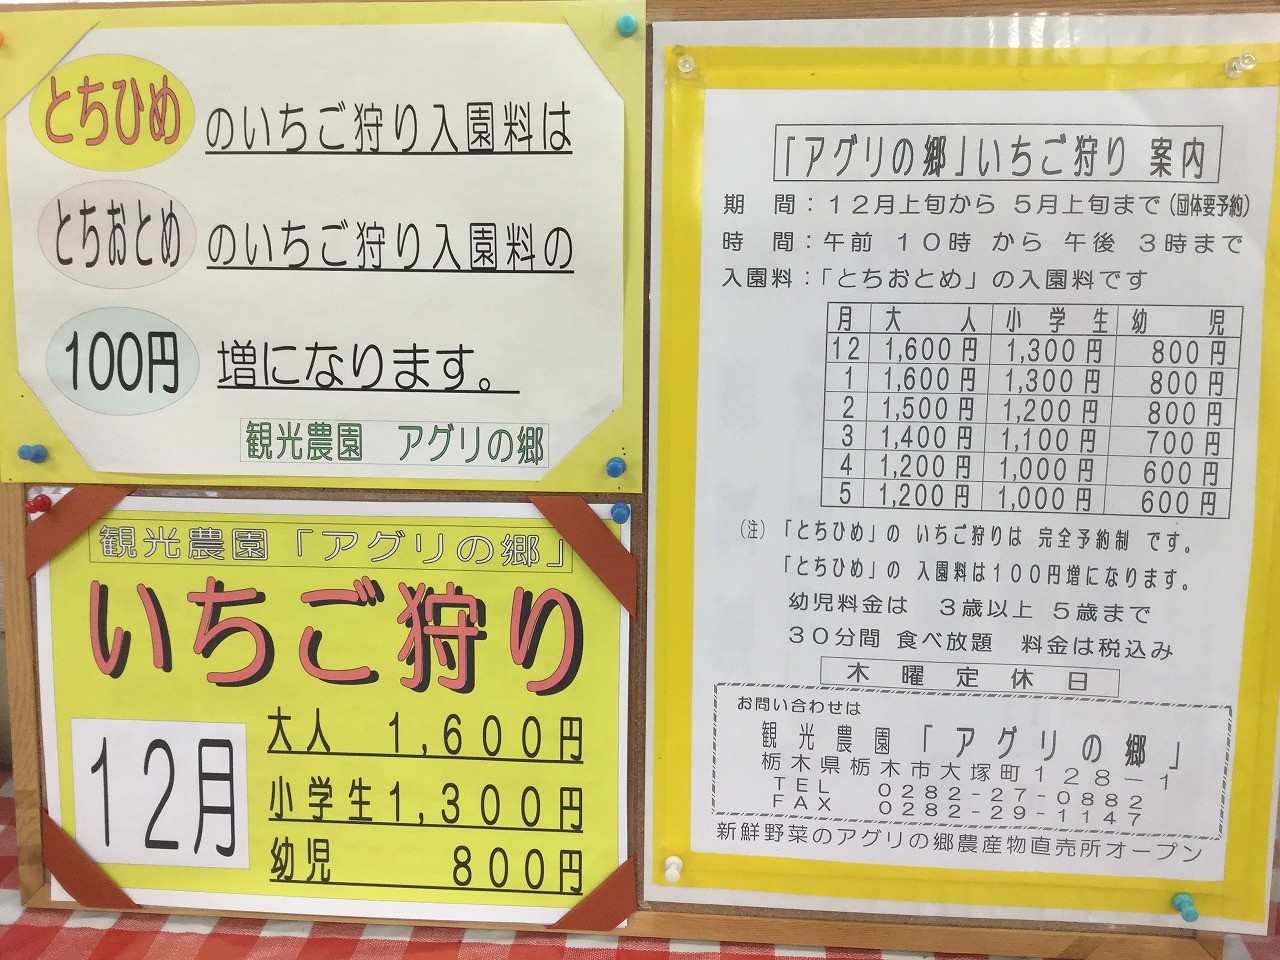 とちひめ のいちご狩り入園料は
とちおとめ のいちご狩り入園料の
100円 増になります。
観光農園 アグリの郷
観光農園「アグリの郷」
いちご狩り
12月
大人 1,600円
小学生1,300円
幼児 800円
「アグリの郷」いちご狩り 案内
期 間：12月上旬から 5月上旬まで(団体要予約)
時 間：午前 10時 から 午後 3時まで
入園料：「とちおとめ」の入園料です
月 大 人 小 学 生 幼 児
12 1,600円 1,300円 800円
1 1,600円 1,300円 800円
2 1,500円 1,200円 800円
3 1,400円 1,100円 700円
4 1,200円 1,000円 600円
5 1,200円 1,000円 600円
(注) 「とちひめ」の いちご狩りは 完全予約制 です。
「とちひめ」の 入園料は100円増になります。
幼児料金は 3歳以上 5歳まで
30分間 食べ放題 料金は税込み
木 曜 定 休 日
お問い合わせは
観 光 農 園 「 ア グ リ の 郷 」
栃木県栃木市大塚町128-1
TEL 0282-27-0882
FAX 0282-29-1147
新鮮野菜のアグリの郷農産物直売所オープン